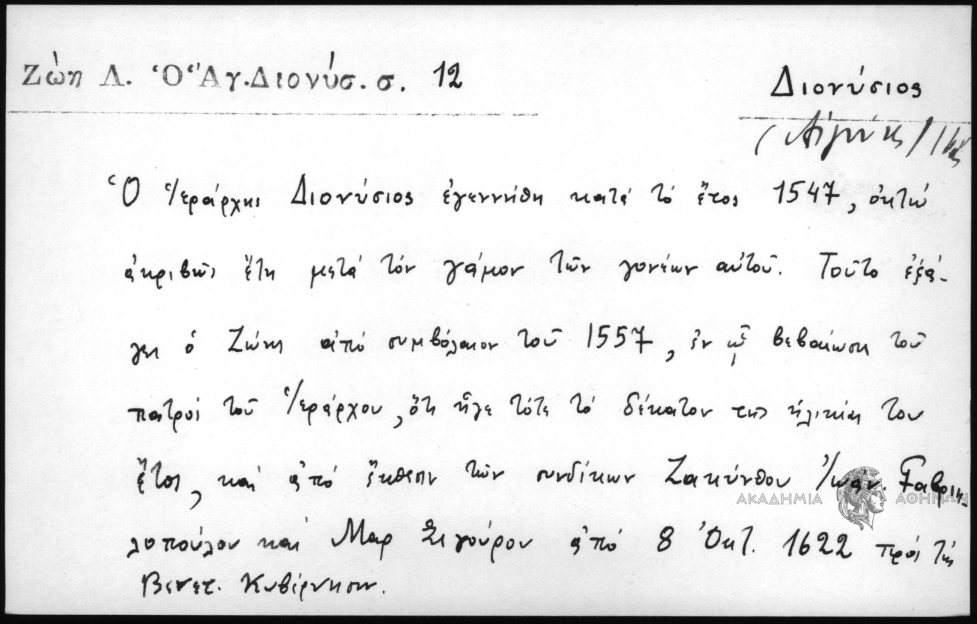 Ζώη Λ. Ὁ Ἅγ. Διονύσ. σ. 12
Διονύσιος
(Αἰγίνης)
Ὁ Ἱεράρχης Διονύσιος ἐγεννήθη κατά τό ἔτος 1547, ὀκτώ
ἀκριβῶς ἔτη μετά τόν γάμον τῶν γονέων αὐτοῦ. Τοῦτο ἐξά-
γει ὁ Ζώης ἀπό συμβόλαιον τοῦ 1557, ἐν ᾧ βεβαίωσις τοῦ
πατρός τοῦ Ἱεράρχου, ὅτι ἦγε τότε τό δέκατον τῆς ἡλικίας του
ἔτος, καί ἀπό ἔκθεσιν τῶν συνδίκων Ζακύνθου Ἰωάν. Γαβρι
λοπούλου καί Μαρ Σιγούρου ἀπό 8 Ὀκτ. 1622 πρός τήν
Βενετ. Κυβέρνησιν.
ΑΚΑΔΗΜΙΑ ΑΘΗΝΩΝ